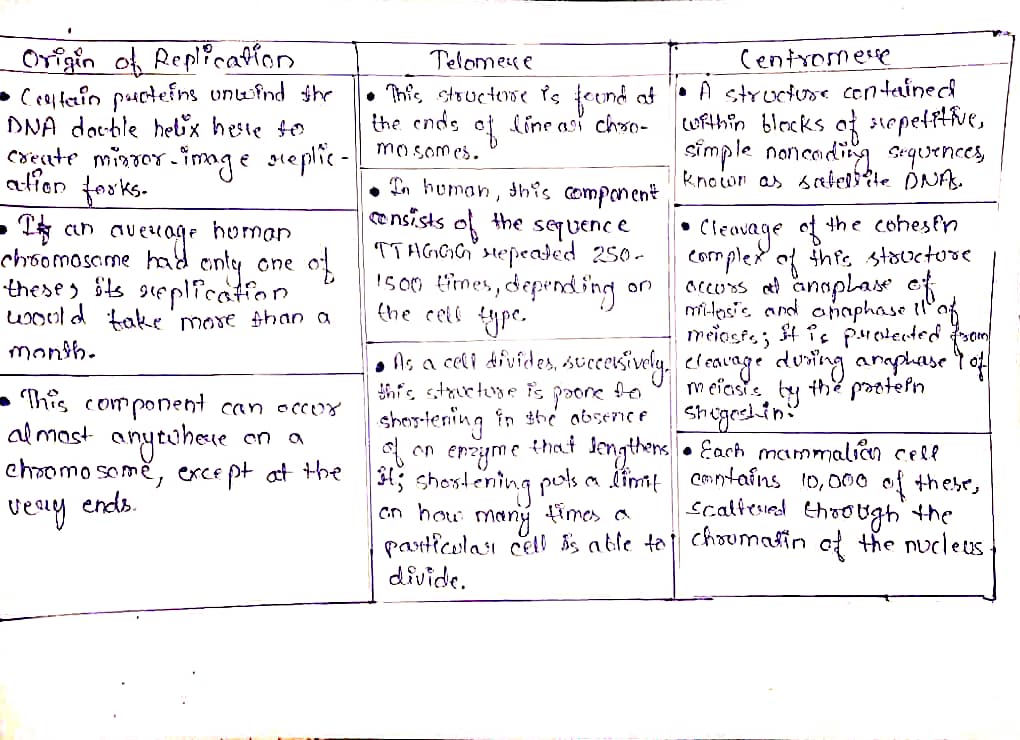 Origin of Replication
• Certain proteins unwind the
DNA double helix here to
create mirror-image replic-
ation forks.
• If an average human
chromosome had only one of
these, its replication
would take more than a
month.
• This component can occur
almost anywhere on a
chromosome, except at the
very ends.
Telomere
• This structure is found at
the ends of linear chro-
mosomes.
• In human, this component
consists of the sequence
TTAGGG repeated 250-
1500 times, depending on
the cell type.
• As a cell divides, successively,
this structure is prone to
shortening in the absence
of an enzyme that lengthens
it; shortening puts a limit
on how many times a
particular cell is able to
divide.
Centromere
• A structure contained
within blocks of repetitive,
simple noncoding sequences,
known as satellite DNAs.
• Cleavage of the cohesin
complex of this structure
occurs at anaphase of
mitosis and anaphase II of
meiosis; it is protected from
cleavage during anaphase I of
meiosis by the protein
shugoshin.
• Each mammalian cell
contains 10,000 of these,
scattered through the
chromatin of the nucleus